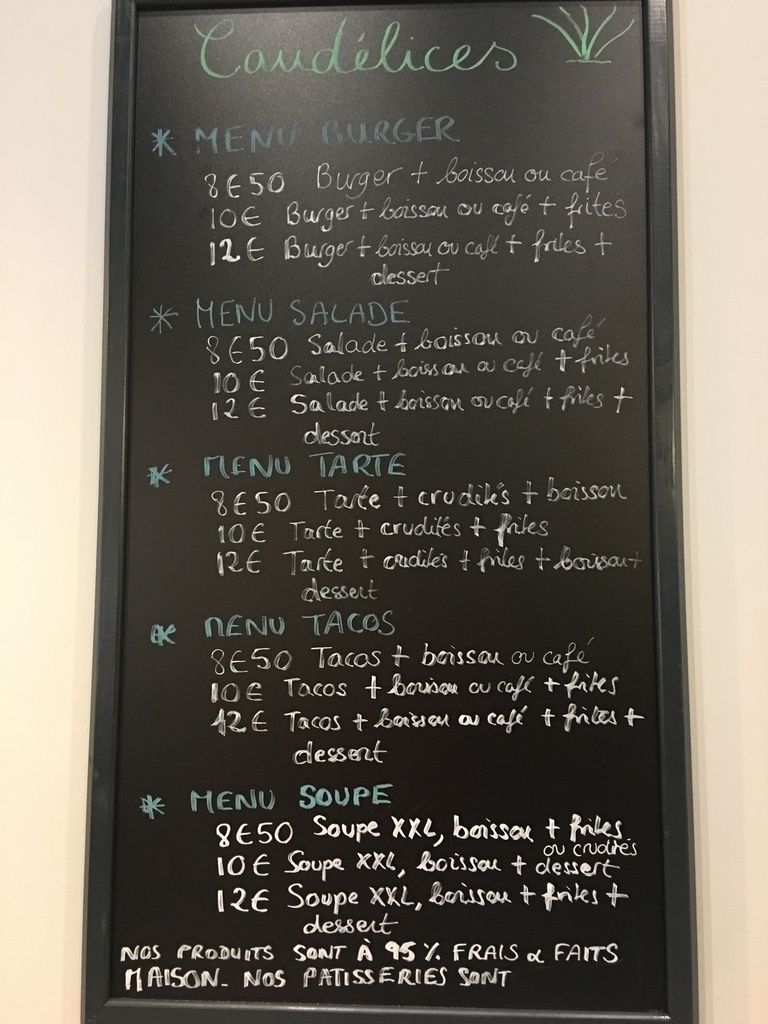 Caudélices
* MENU BURGER
8€50 Burger + boisson ou café
10€ Burger + boisson ou café + frites
12€ Burger + boisson ou café + frites +
dessert
* MENU SALADE
8€50 Salade + boisson ou café
10€ Salade + boisson ou café + frites
12€ Salade + boisson ou café + frites +
dessert
* MENU TARTE
8€50 Tarte + crudités + boisson
10€ Tarte + crudités + frites
12€ Tarte + crudités + frites + boisson +
dessert
* MENU TACOS
8€50 Tacos + boisson ou café
10€ Tacos + boisson ou café + frites
12€ Tacos + boisson ou café + frites +
dessert
* MENU SOUPE
8€50 Soupe XXL, boisson + frites
ou crudités
10€ Soupe XXL, boisson + dessert
12€ Soupe XXL, boisson + frites +
dessert
NOS PRODUITS SONT À 95% FRAIS & FAITS
MAISON. NOS PATISSERIES SONT